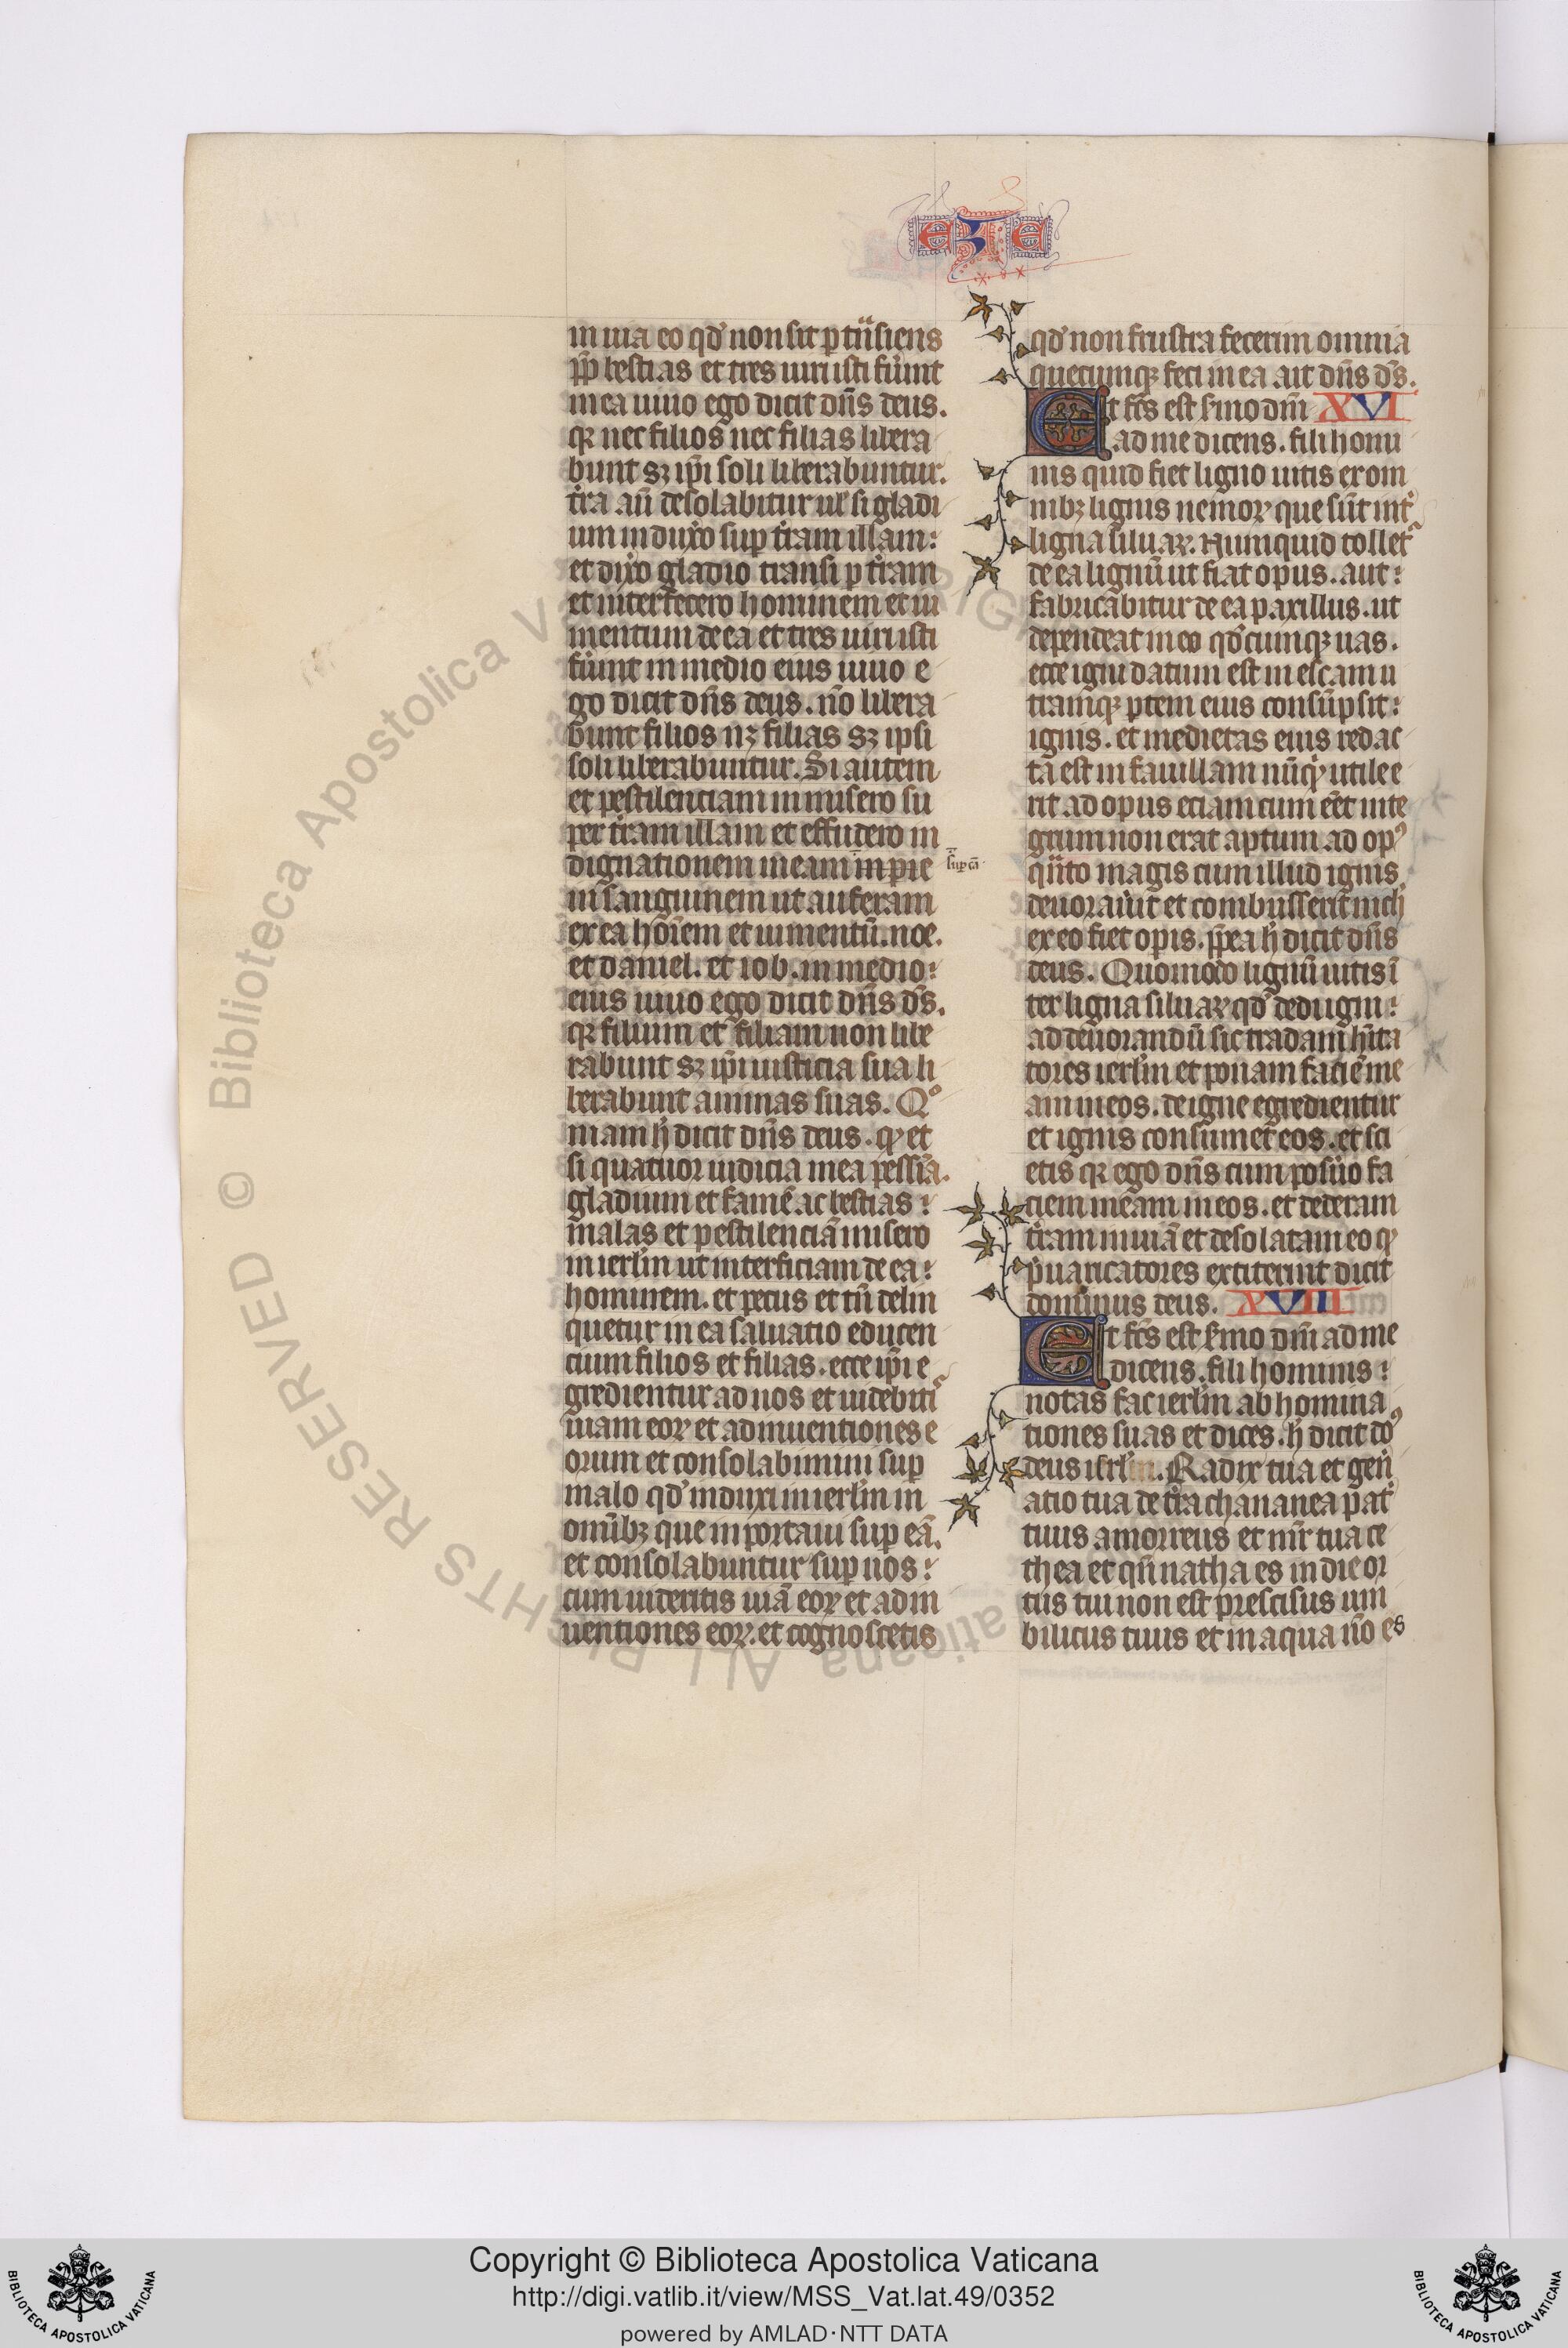 EZE
in uia eo qd̕ non sit p̱tͥnsiens
ꝓp̱ bestias et tres uiri isti fu̕int
in ea uiuo ego dicit dn̄s deus.
qꝛ nec filios nec filias libera
bunt sꝫ ip̄i soli liberabuntur.
t̕ra au̅ desolabitur uel̕ si gladi
um induxo̕ suꝑ t̕ram illam:
et dixo̕ gladio transi ꝑ t̕ram
et interfecero hominem et iu
mentum de ea et tres uiri isti
fu̕int in medio eius uiuo e
go dicit dn̄s deus. no̅ libera
bunt filios nꝫ filias sꝫ ipsi
soli liberabuntur. Si autem
et pestilenciam inmisero su
per t̕ram illam et effudero in
dignationem meam in pre
suꝑ ea̅
in sanguinem ut auferam
ex ea hoi̅em et iumentu̅. noe.
et daniel. et iob. in medio:
eius uiuo ego dicit dn̄s d̄s.
qꝛ filium et filiam non libe
rabunt sꝫ ip̄i iusticia sua li
berabunt animas suas. Qͦ
niam h̕ dicit dn̄s deus. qꝫ et
si quatuor iudicia mea pessi̅a.
gladium et fame̅ ac bestias:
malas et pestilencia̅ misero
in ierl̕m ut interficiam de ea:
hominem. et pecus et tn̅ delin
quetur in ea saluatio educen
cium filios et filias. ecce ip̄i e
gredientur ad uos et uidebiti᷑
uiam eoꝝ et adinuentiones e
orum et consolabimini suꝑ
malo qd̕ induxi in ierl̕m in
omi̅bꝫ que inportaui suꝑ ea̅.
et consolabuntur suꝑ uos:
cum uideritis uia̅ eoꝝ et adin
uentiones eoꝝ. et cognoscetis
qd̕ non frustra fecerim omnia
quecumqꝫ feci in ea ait dn̄s d̄s.
Et fc̄s est s̕mo dn̄i XVI
ad me dicens. fili homi
nis quid fiet ligno uitis ex om
nibꝫ lignis nemoꝝ que su̅t int̕
ligna siluaꝝ. Numquid tollet᷑
de ea lignu̅ ut fiat opus. aut:
fabricabitur de ea paxillus. ut
dependeat in eo qd̕cumqꝫ uas.
ecce igni datum est in escam u
tramqꝫ ꝑtem eius consu̅psit:
ignis. et medietas eius redac
ta̅ est in fauillam nu̅qͥd utile e
rit ad opus eciam cum ee̅t inte
grum non erat aptum ad opꝰ
qͣnto magis cum illud ignis
deuorau̕it et combusserit nich̕
ex eo fiet opis. ꝓp̱ea h̕ dicit dn̄s
deus. Quomodo lignu̅ uitis i̅
ter ligna siluaꝝ qd̕ dedi igni:
ad deuorandu̅ sic tradam hi̅ta
tores ierl̕m et ponam facie̅ me
am in eos. de igne egredientur
et ignis consumet eos. et sci
etis qꝛ ego dn̄s cum posu̕o fa
ciem meam in eos. et dederam
t̕ram inuia̅ et desolatam eo qꝫ
p̕uaricatores extiterint dicit
dominus deus. XVII
Et fc̄s est s̕mo dn̄i ad me
dicens. fili hominis:
notas fac ierl̕m abhomina
tiones suas et dices. h̕ dicit do̅ꝰ
deus ierl̕m. Radix tua et gen̕
atio tua de t̕ra chananea pat̕
tuus amorreus et mr̅ tua ce
thea et qn̅ natha es in die or
tus tui non est prescisus um
bilicus tuus et in aqua no̅ es
BIBLIOTECA APOSTOLICA VATICANA
© Biblioteca Apostolica Vaticana ALL RIGHTS RESERVED
Copyright © Biblioteca Apostolica Vaticana
http://digi.vatlib.it/view/MSS_Vat.lat.49/0352
powered by AMLAD·NTT DATA
BIBLIOTECA APOSTOLICA VATICANA